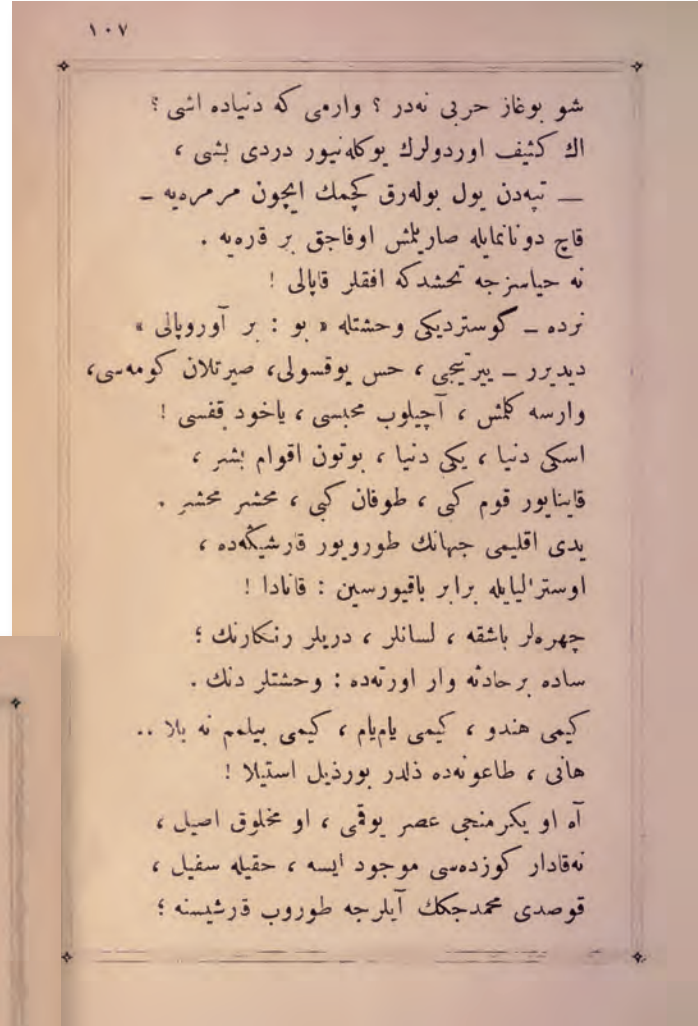 ١٠٧
شو بوغاز حربی نه‌در ؟ وارمی كه دنیاده اشی ؟
اك كثیف اوردولرك یوكله‌نیور دردی بشی ،
— تپه‌دن یول بوله‌رق كچمك ایچون مرمره‌یه –
قاچ دونانمایله صاریلمش اوفاجق بر قره‌یه .
نه حیاسزجه تحشدكه افقلر قاپالی !
نرده – كوستردیكی وحشتله « بو : بر آوروپالی »
دیدیرر – ییرتیجی ، حس یوقسولی، صیرتلان كومه‌سی،
وارسه كلمش ، آچیلوب محبسی ، یاخود قفسی !
اسكی دنیا ، یكی دنیا ، بوتون اقوام بشر ،
قاینایور قوم كبی ، طوفان كبی ، محشر محشر .
یدی اقلیمی جهانك طورویور قارشیڭه‌ده ،
اوسترالیایله برابر باقیورسین : قانادا !
چهره‌لر باشقه ، لسانلر ، دریلر رنكارنك ؛
ساده بر حادثه وار اورته‌ده : وحشتلر دنك .
كیمی هندو ، كیمی یام‌یام ، كیمی بیلمم نه بلا ..
هانی ، طاعونه‌ده ذلدر بورذیل استیلا !
آه او یكرمنجی عصر یوقمی ، او مخلوق اصیل ،
نه‌قادار كوزده‌سی موجود ایسه ، حقیله سفیل ،
قوصدی محمدجكك آیلرجه طوروب قارشیسنه ؛